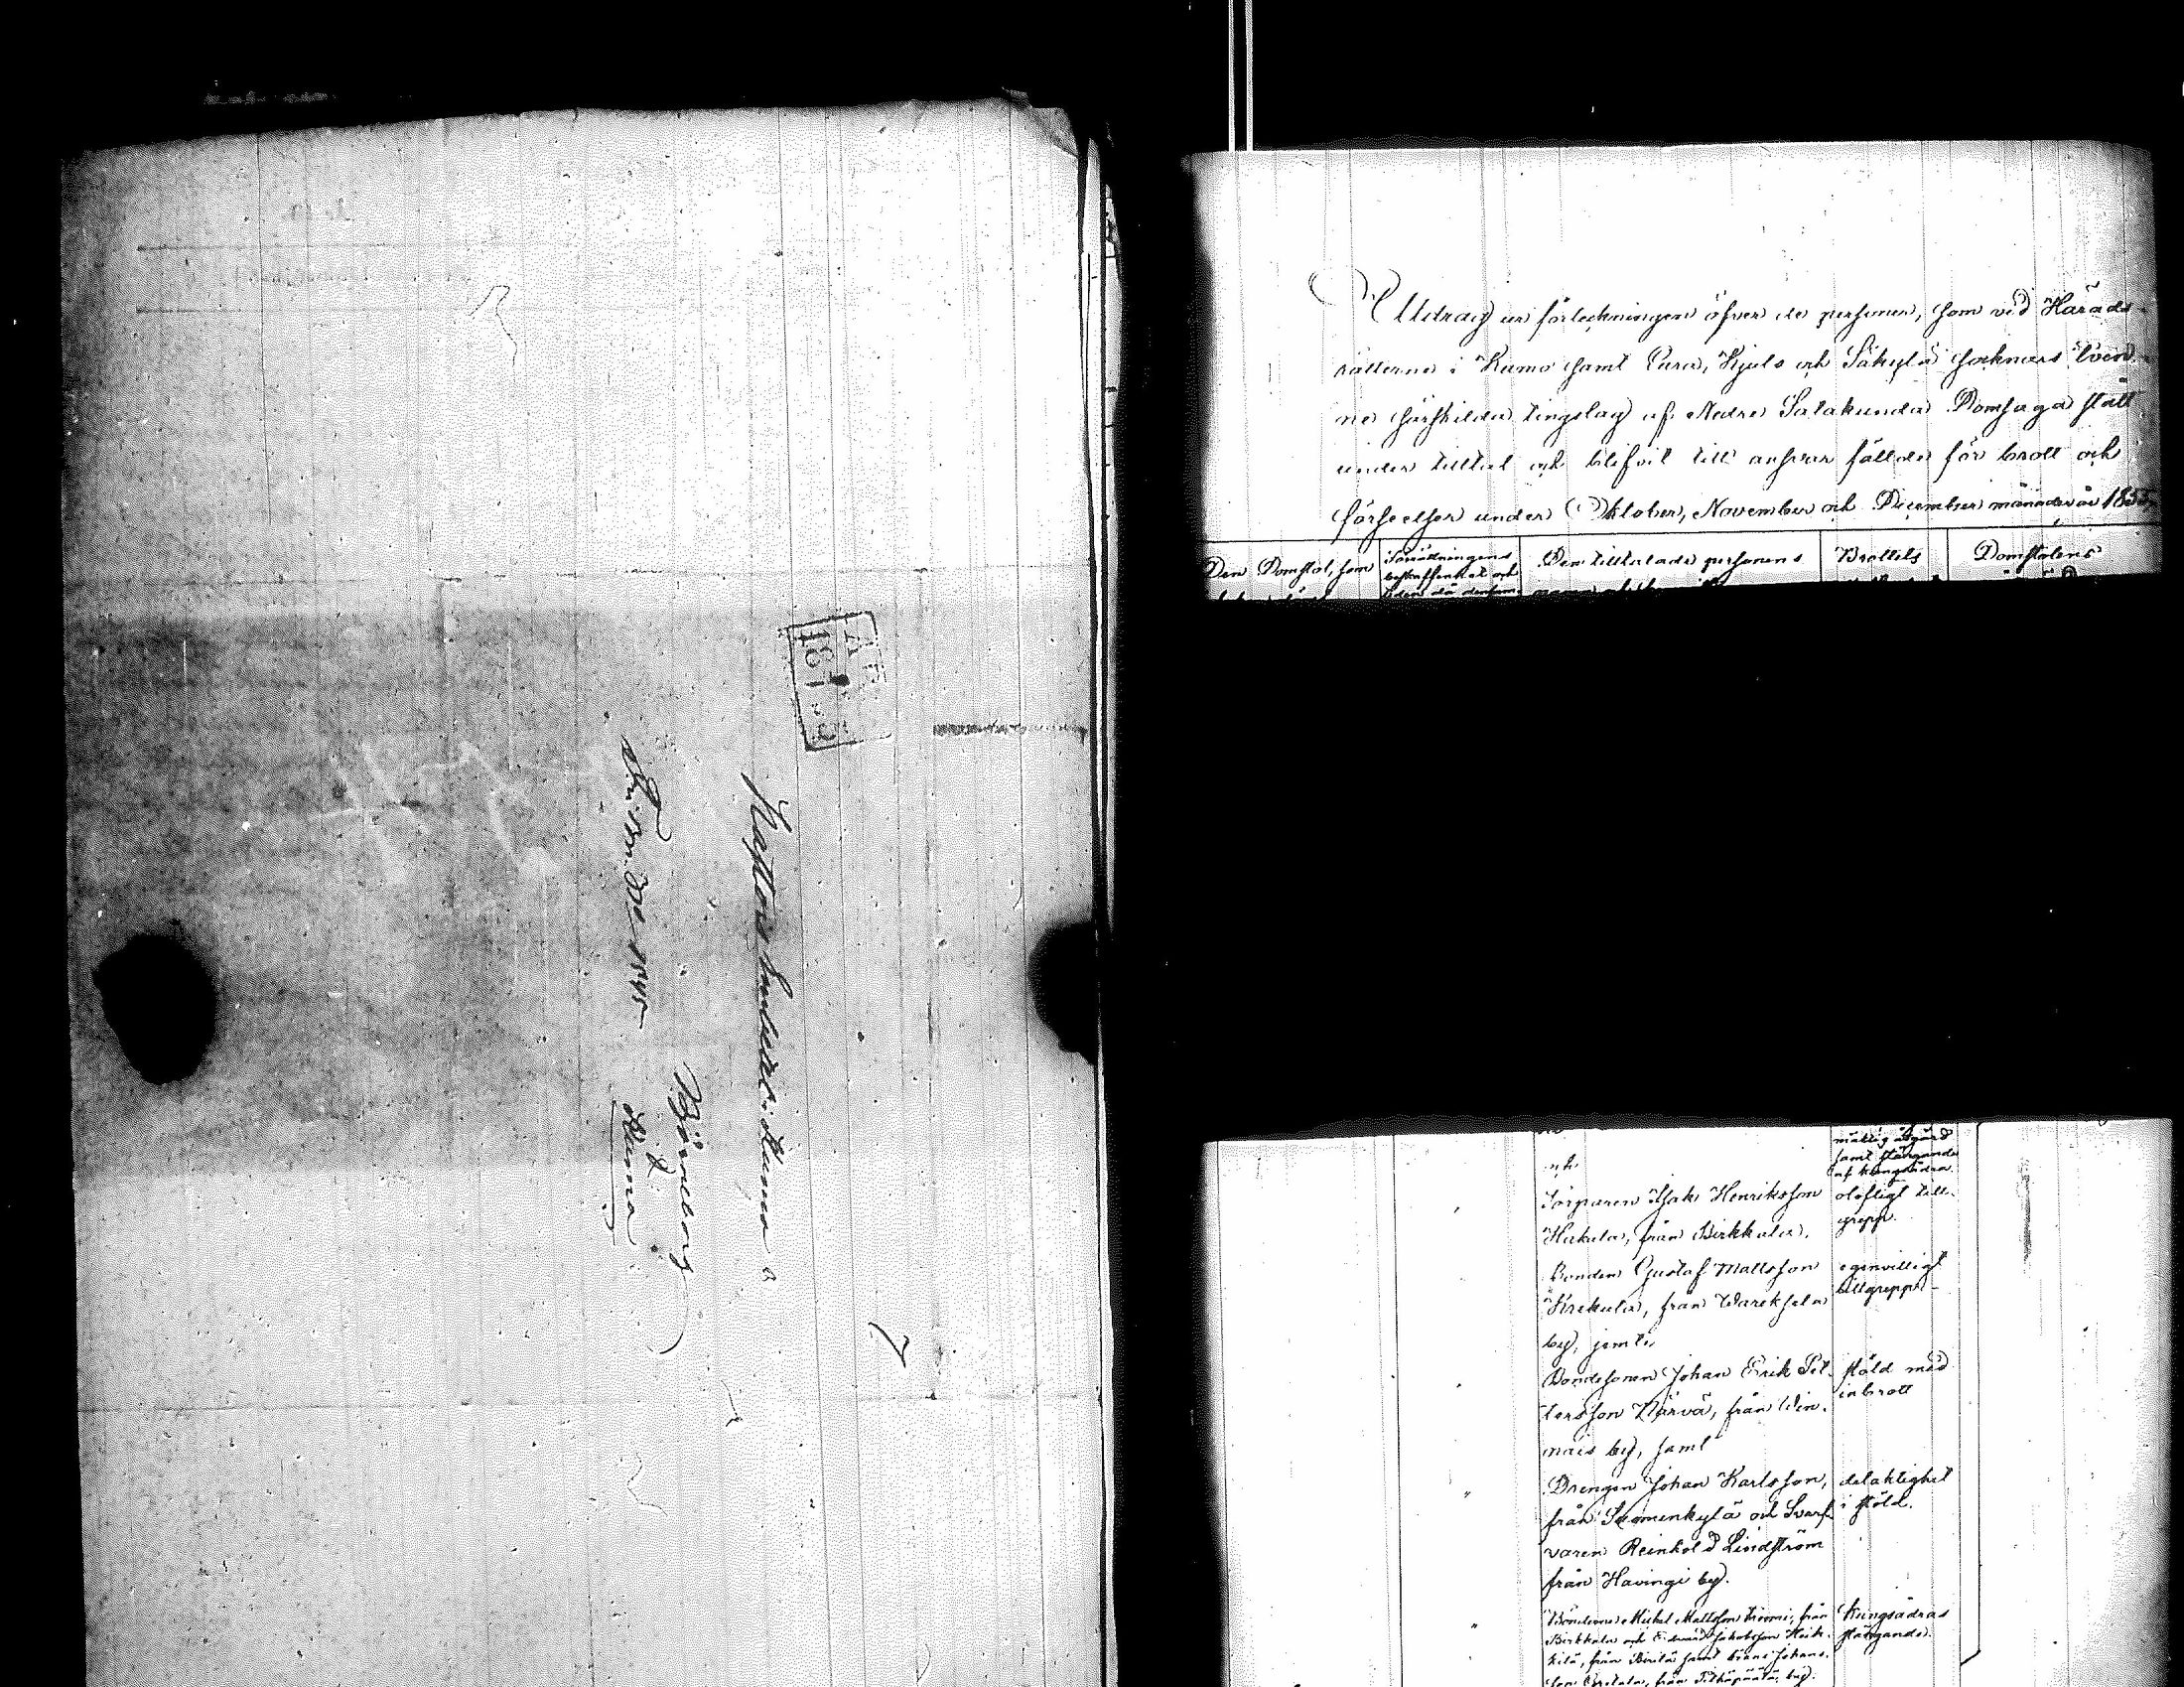 Guvernörens
Björneborg
Kumo
Utdrag ur förteckningen öfver de personer, som vid Härads-
rätterne i Kumo samt Eura, Kjulo och Säkylä socknars tvän-
ne särskilda tingslag af Nedre Satakunda Domsaga stått
under tilltal och blifvit till ansvar fällde för brott och
förseelser under Oktober, November och December månader år 1855,
Den Domstol, som
Rannsakningens
beskaffenhet och
tiden då densam-
Den tilltalade personens
Brottets
Domstolens
mälig åtgärd
samt stängande
af kungsådra.
och
Torparen Isak Henriksson
Hakula, från Birkkala.
olofligt till-
grepp.
Bonden Gustaf Mattsson
Krekula, från Warekselä
by, jemte
egenvilligt
tillgrepp.
Bondesonen Johan Erik Pet-
tersson Närvä, från Win-
nais by, samt
stöld med
inbrott
Drengen Johan Karlsson,
från Suomenkylä och Svarf-
varen Reinhold Lindström
från Havingi by.
delaktighet
i stöld.
Bönderne Mickel Mattsson Knomi, från
Birkkala och Edvard Jakobsson Heik-
kilä, från samt Johans-
son från by.
Kungsådras
stängande.